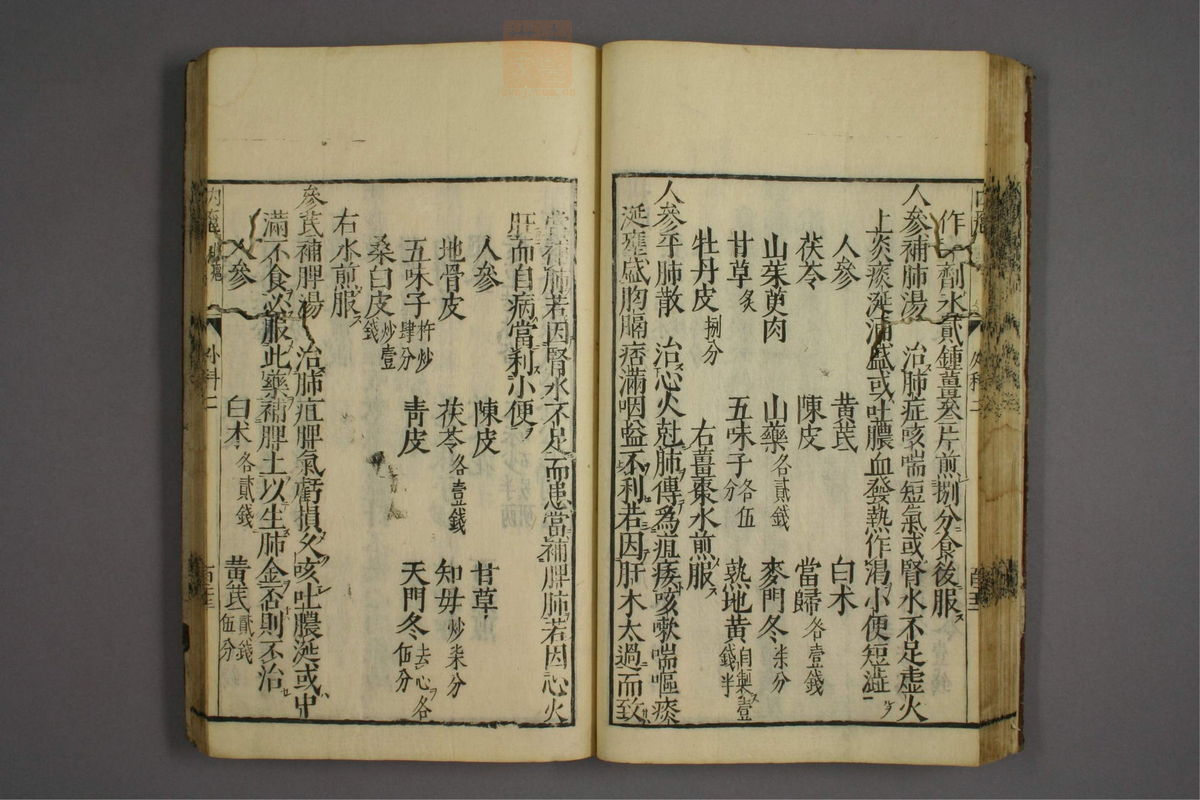 作一劑水貳鍾薑叄片煎捌分食後服
人參補肺湯 治肺症咳喘短氣或腎水不足虛火
上炎痰涎涌盛或吐膿血發熱作渴小便短澁
人參 黃芪 白朮
茯苓 陳皮 當歸各壹錢
山茱萸肉 山藥各貳錢 麥門冬柒分
甘草炙 五味子各伍分 熟地黃自製壹錢半
牡丹皮捌分 右薑棗水煎服
人參平肺散 治心火尅肺傳爲疽痿咳嗽喘嘔痰
涎壅盛胸膈痞滿咽嗌不利若因肝木太過而致
當補肺若因腎水不足而患當補脾肺若因心火
肝而自病當利小便
人參 陳皮 甘草
地骨皮 茯苓各壹錢 知母炒柒分
五味子杵炒肆分 青皮 天門冬去心各伍分
桑白皮炒壹錢
右水煎服
參芪補脾湯 治肺疽脾氣虧損久咳吐膿涎或中
滿不食必服此藥補脾土以生肺金否則不治
人參 白朮各貳錢 黃芪貳錢伍分